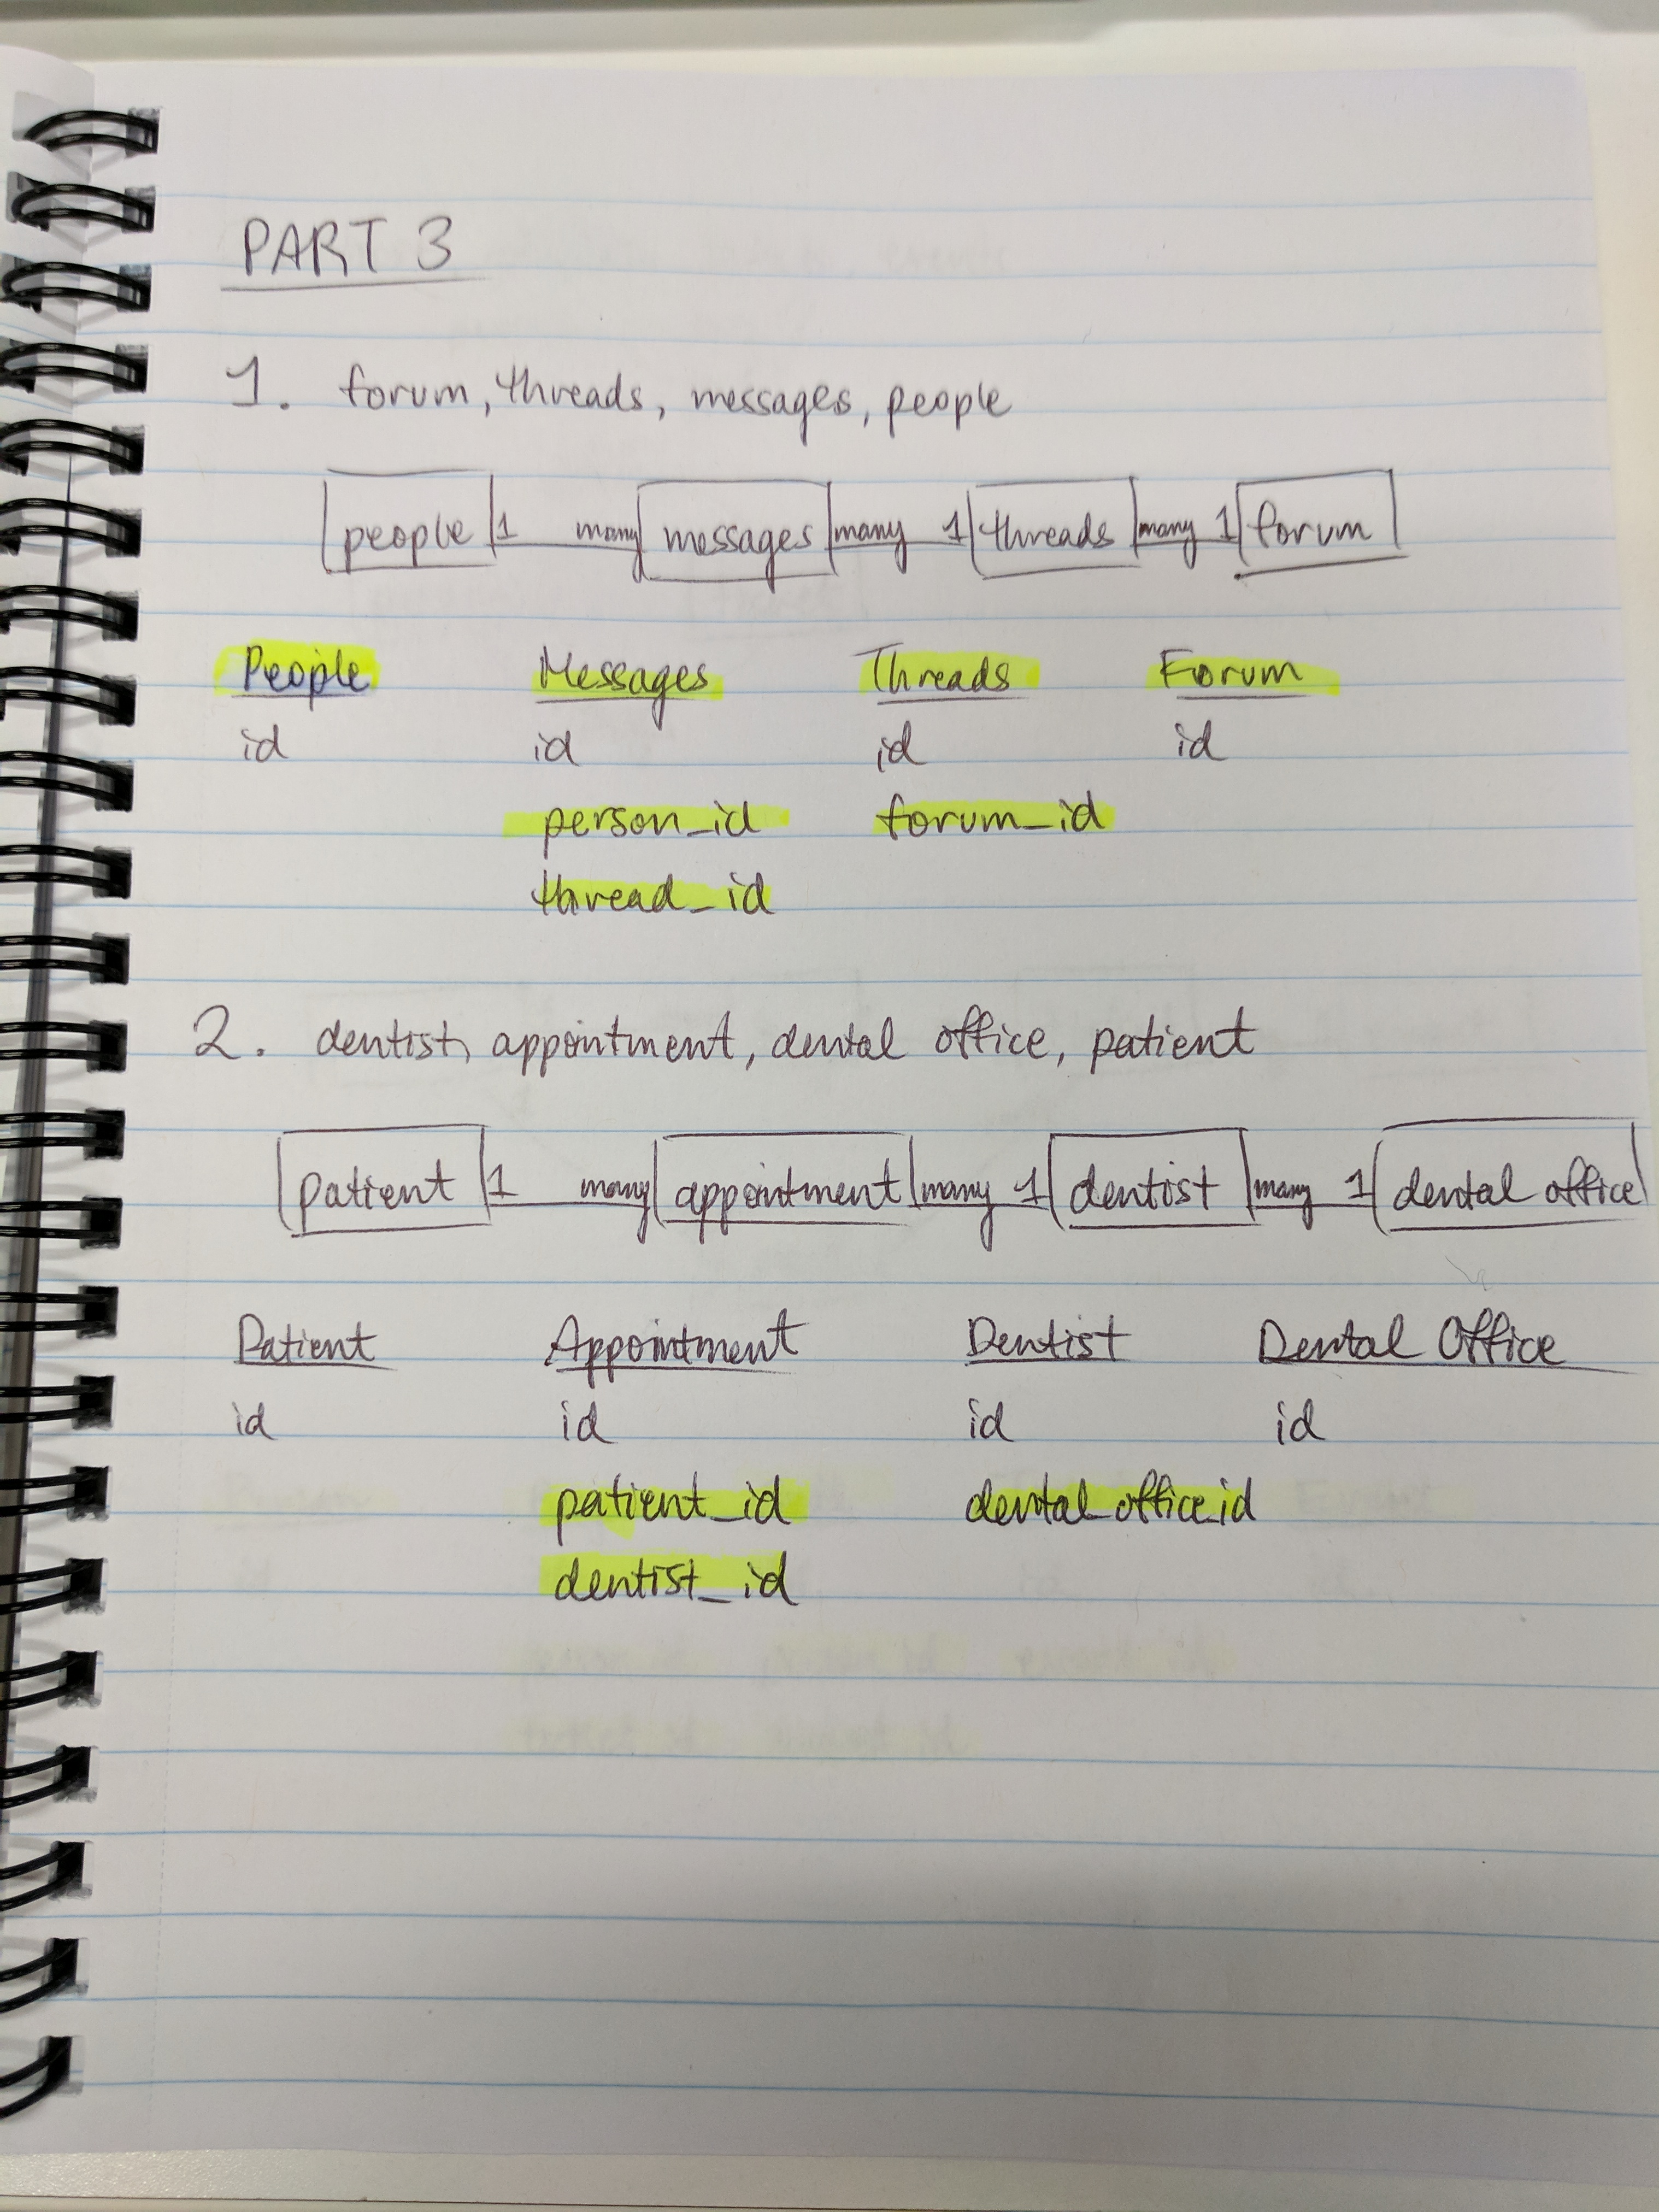 PART 3
1. forum, threads, messages, people
people 1 many messages many 1 threads many 1 forum
People Messages Threads Forum
id id id id
person_id forum_id
thread_id
2. dentist, appointment, dental office, patient
patient 1 many appointment many 1 dentist many 1 dental office
Patient Appointment Dentist Dental Office
id id id id
patient_id dental_office_id
dentist_id